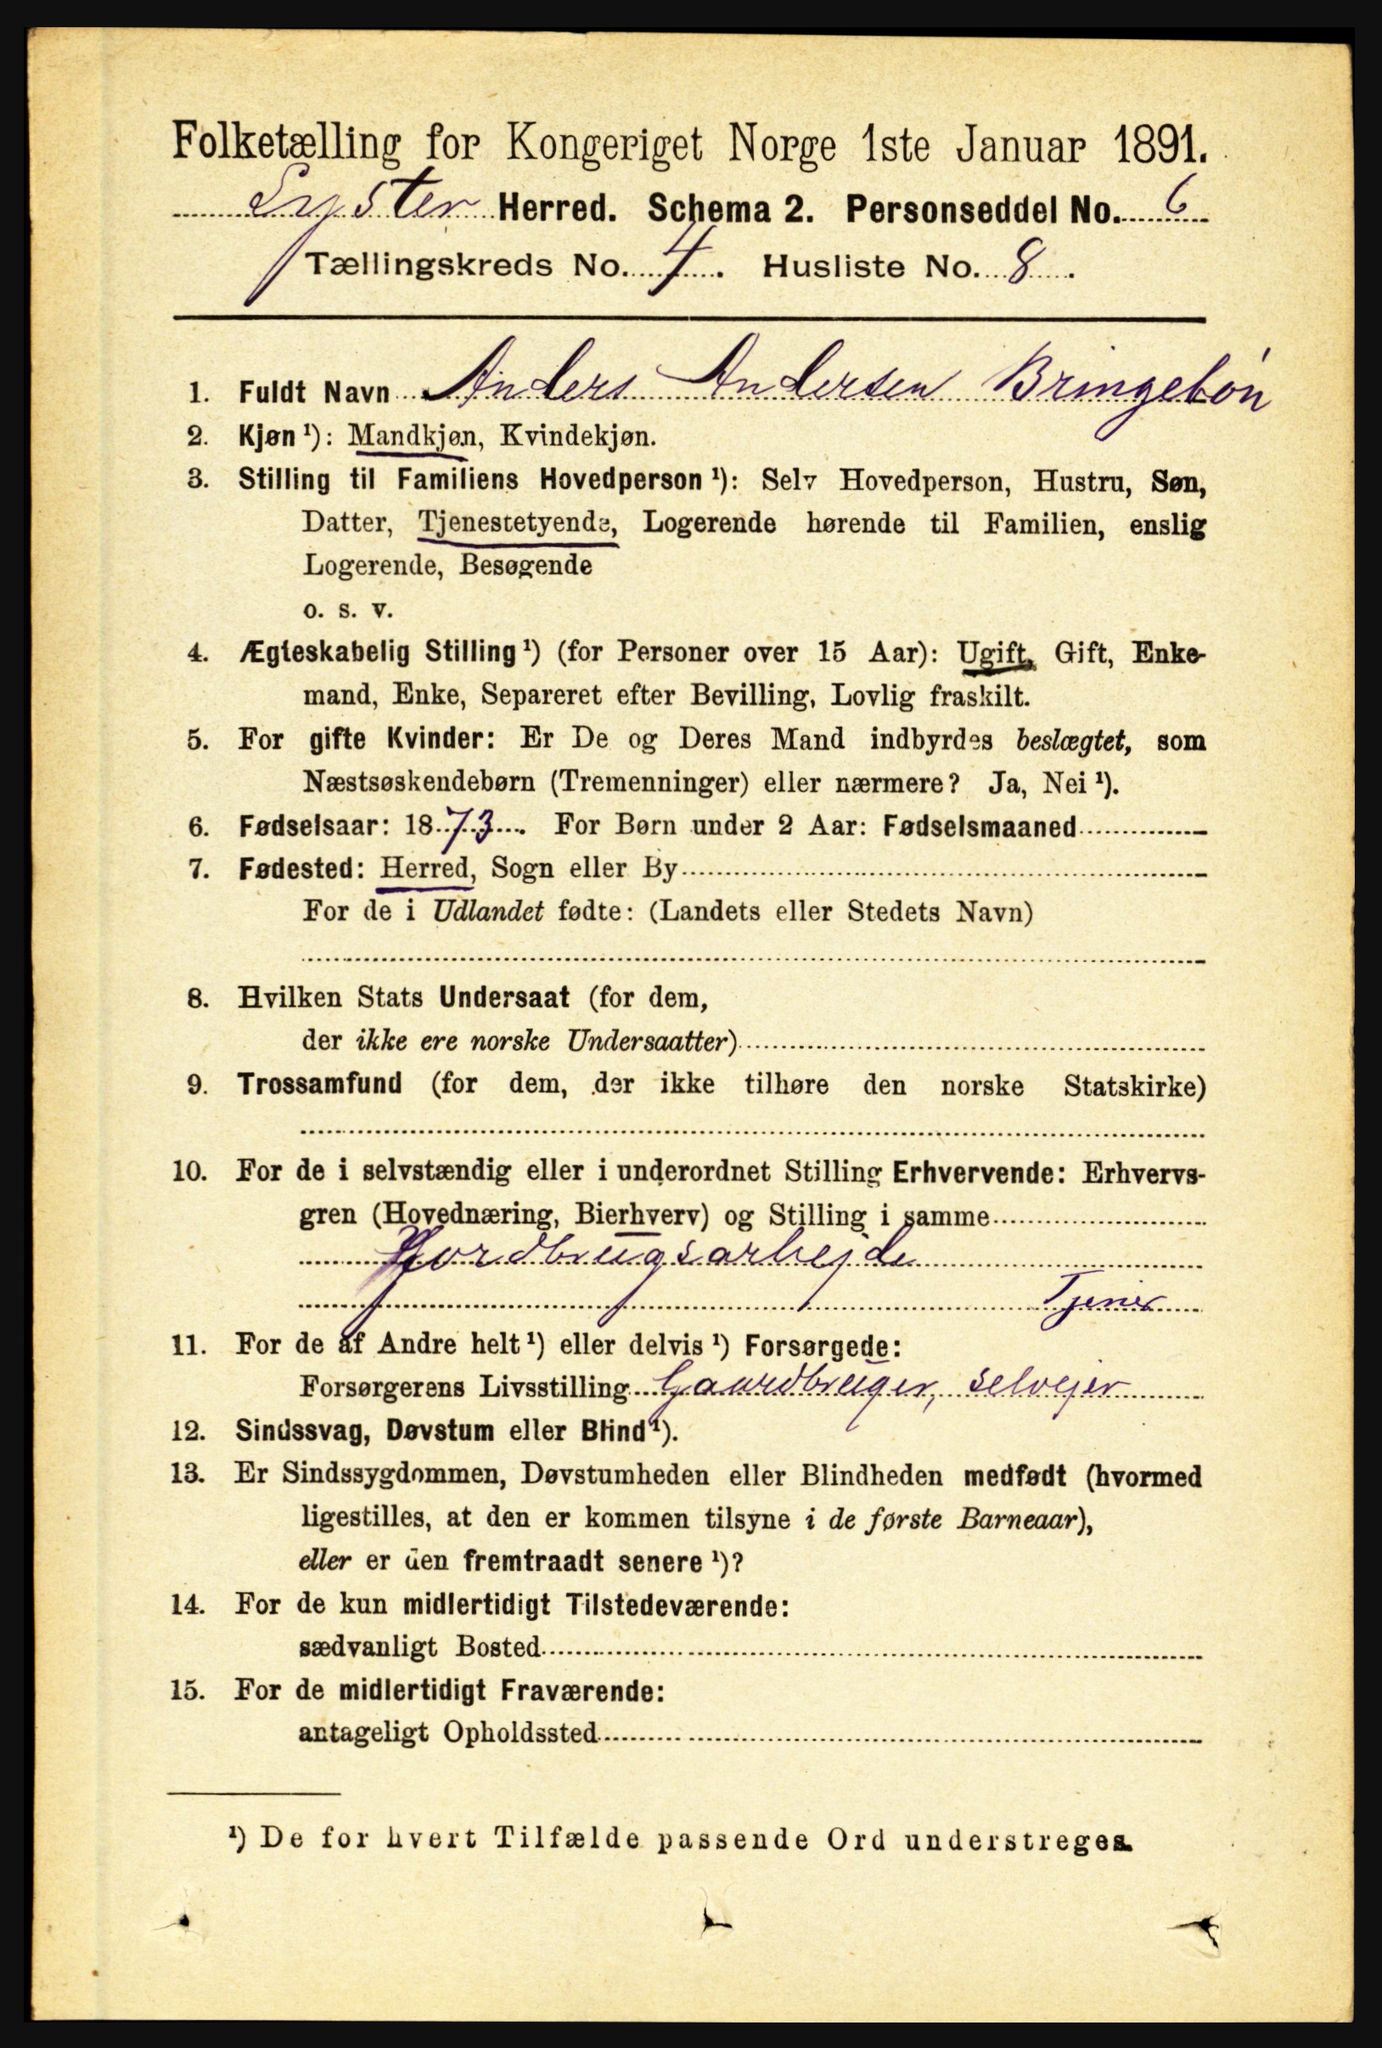 Folketælling for Kongeriget Norge 1ste Januar 1891.
Lyster Herred. Schema 2. Personseddel No. 6
Tællingskreds No. 4. Husliste No. 8.
1. Fuldt Navn Anders Andersen Bringebön
2. Kjøn ¹): Mandkjøn, Kvindekjøn.
3. Stilling til Familiens Hovedperson ¹): Selv Hovedperson, Hustru, Søn,
Datter, Tjenestetyende, Logerende hørende til Familien, enslig
Logerende, Besøgende
o. s. v.
4. Ægteskabelig Stilling ¹) (for Personer over 15 Aar): Ugift, Gift, Enke-
mand, Enke, Separeret efter Bevilling, Lovlig fraskilt.
5. For gifte Kvinder: Er De og Deres Mand indbyrdes beslægtet, som
Næstsøskendebørn (Tremenninger) eller nærmere? Ja, Nei ¹).
6. Fødselsaar: 1873. For Børn under 2 Aar: Fødselsmaaned
7. Fødested: Herred, Sogn eller By
For de i Udlandet fødte: (Landets eller Stedets Navn)
8. Hvilken Stats Undersaat (for dem,
der ikke ere norske Undersaatter)
9. Trossamfund (for dem, der ikke tilhøre den norske Statskirke)
10. For de i selvstændig eller i underordnet Stilling Erhvervende: Erhvervs-
gren (Hovednæring, Bierhverv) og Stilling i samme
Jordbrugsarbejde
Tjener
11. For de af Andre helt ¹) eller delvis ¹) Forsørgede:
Forsørgerens Livsstilling Gaardbruger, selvejer
12. Sindssvag, Døvstum eller Blind ¹).
13. Er Sindssygdommen, Døvstumheden eller Blindheden medfødt (hvormed
ligestilles, at den er kommen tilsyne i de første Barneaar),
eller er den fremtraadt senere ¹)?
14. For de kun midlertidigt Tilstedeværende:
sædvanligt Bosted
15. For de midlertidigt Fraværende:
antageligt Opholdssted
¹) De for hvert Tilfælde passende Ord understreges.